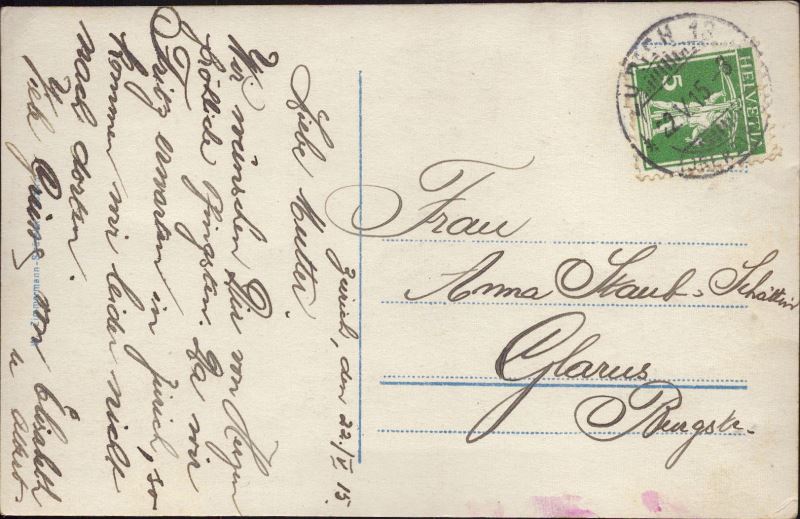 Zürich, den 22./V. 15.
Liebe Mutter!
Wir wünschen Dir von Herzen
fröhliche Pfingsten. Da wir
Fritz erwarten in Zürich, so
kommen wir leider nicht
nach dorten.
Grüsse von Elisabeth
u Albert
Frau
Anna Staub-
Glarus
Burgstr.
HELVETIA
5
ZÜRICH 13
22.V.15. 8